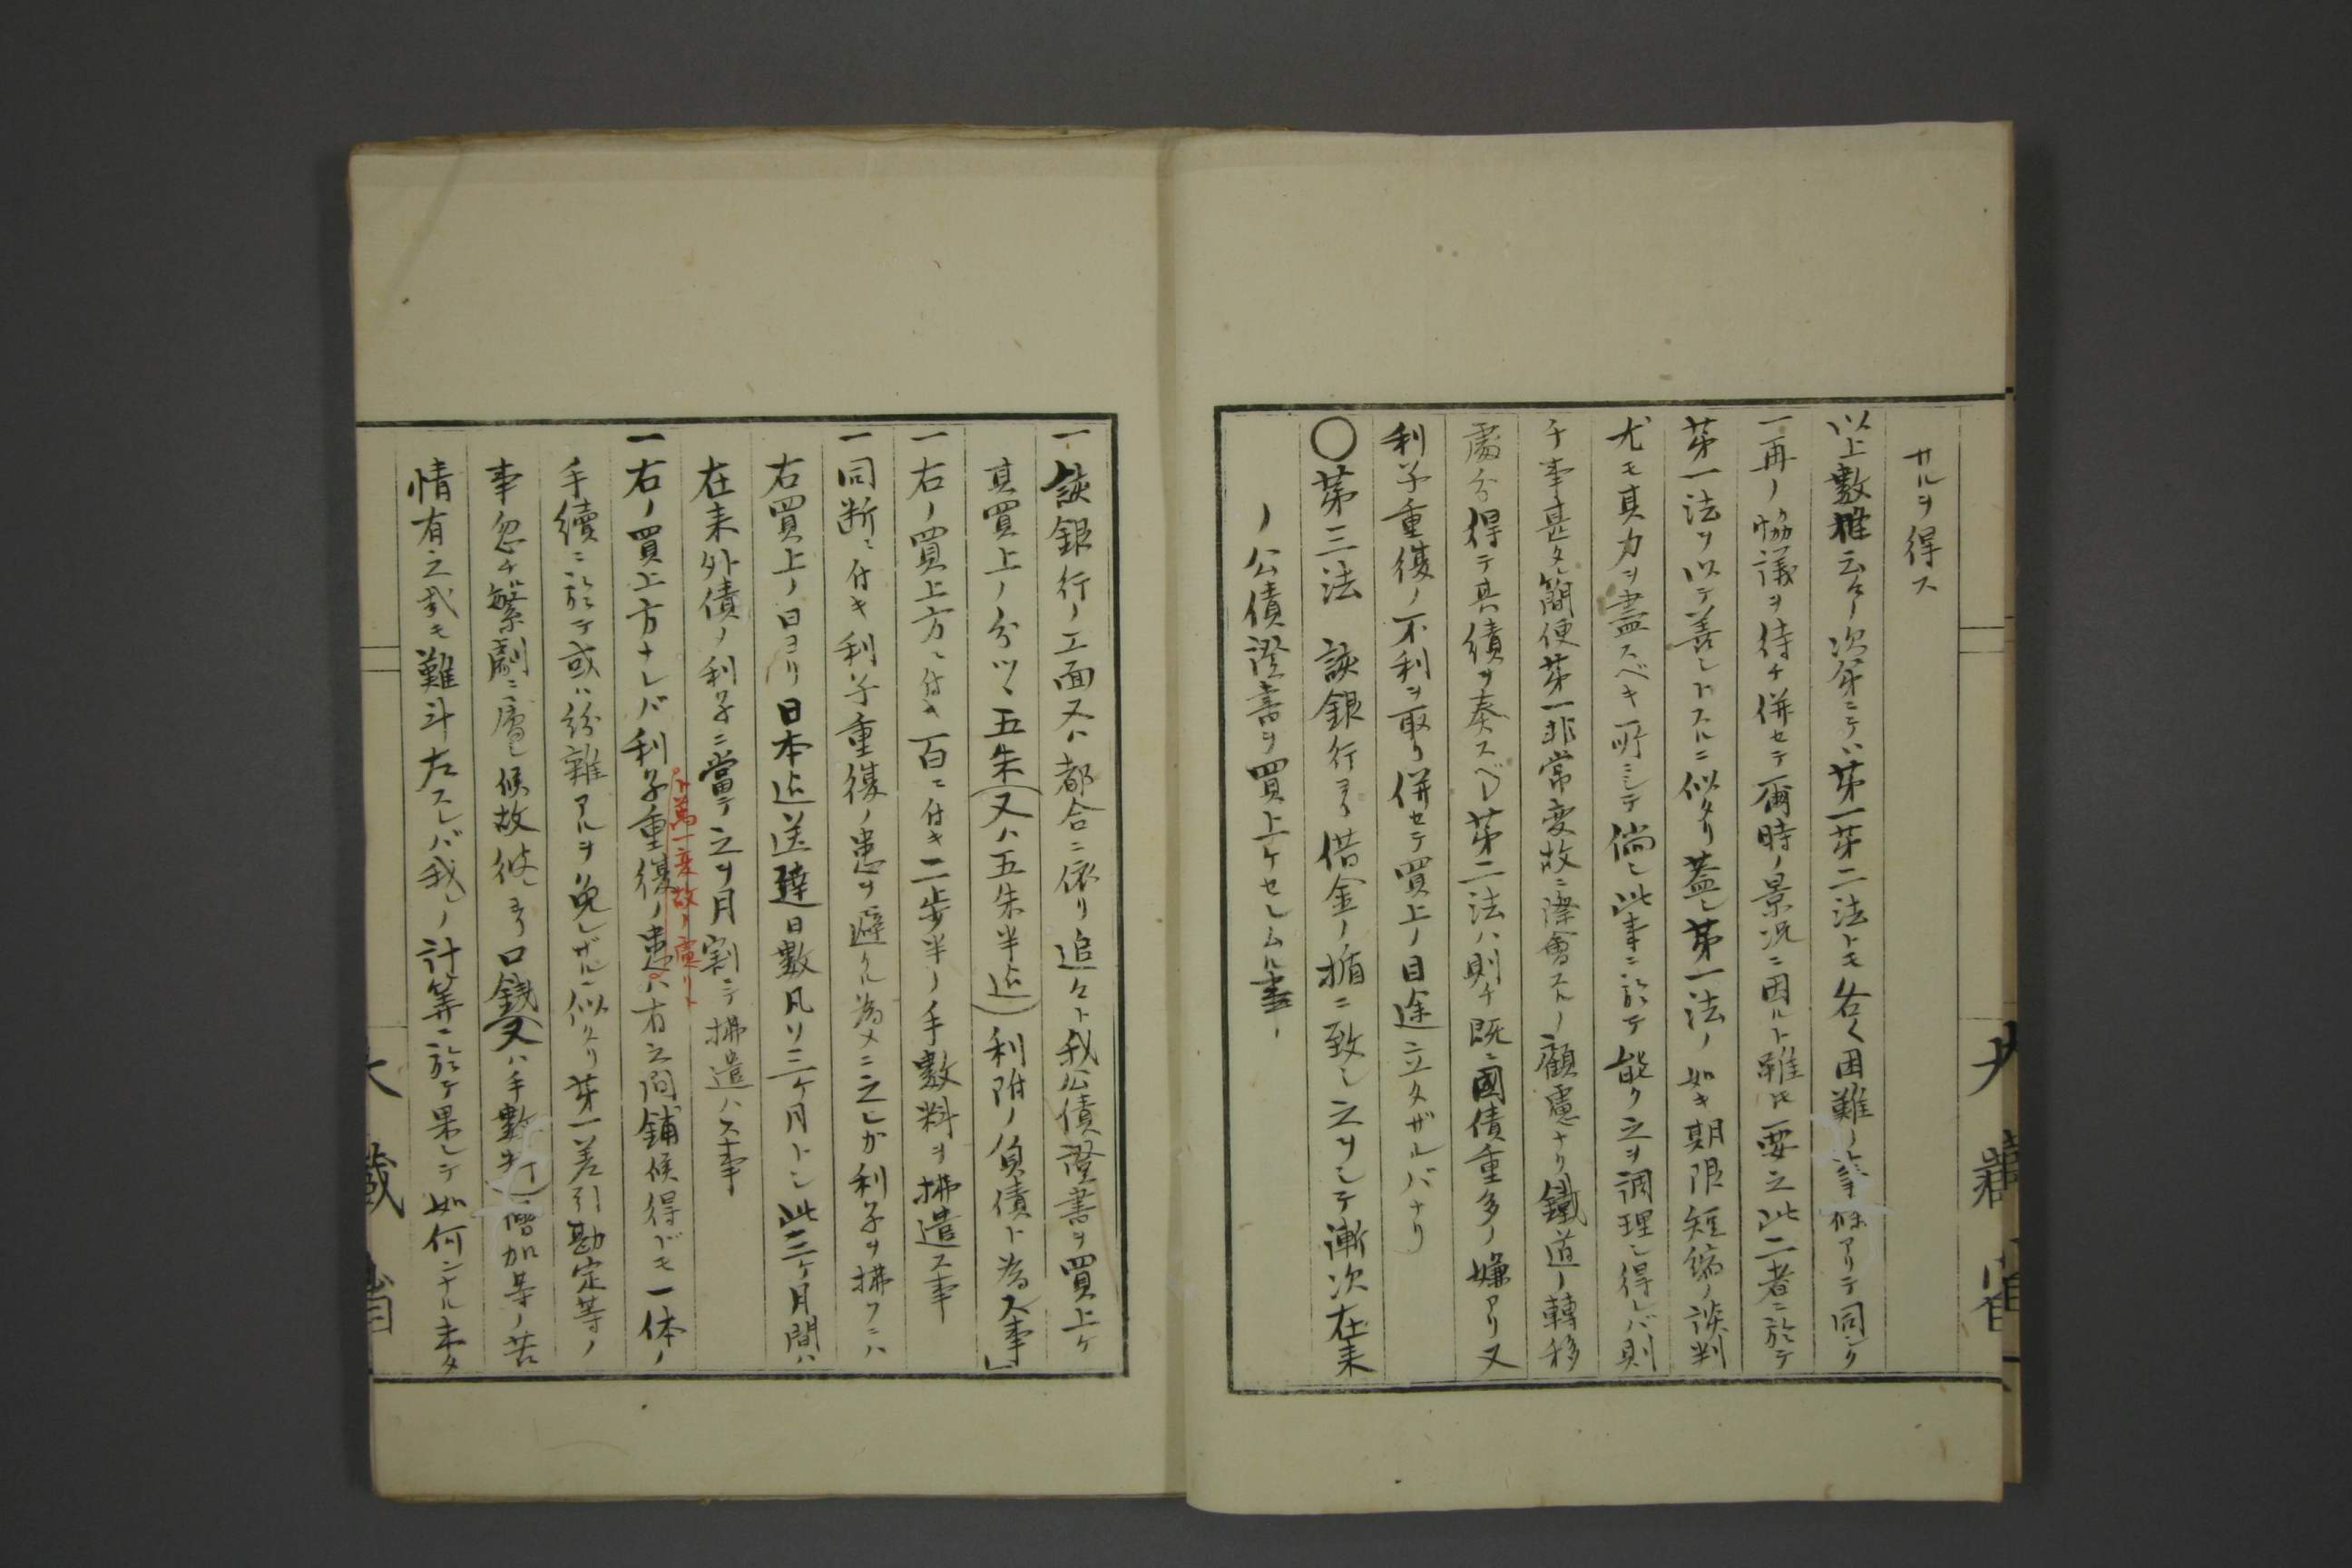 サルヲ得ス
以上數種云々ノ次第ニテハ第一第二法トモ各〻困難ノ事條アリテ同シク
一再ノ協議ヲ待チ併セテ爾時ノ景況ニ因ルト雖トモ要之此二者ニ於テ
第一法ヲ以テ善シトスルニ似タリ蓋シ第一法ノ如キ期限短縮ノ談判
尤モ其力ヲ盡スベキ所ニシテ倘シ此事ニ於テ能ク之ヲ調理シ得レバ則
チ事甚タ簡便第一非常変故ニ際會スルノ顧慮ナク鐵道ノ轉移
處分得テ其績ヲ奏スベシ第二法ハ則チ既ニ國債重多ノ嫌アリ又
利子重復ノ不利ヲ取リ併セテ買上ノ目途立タザルバナリ
〇第三法 該銀行ヨリ借金ノ揗ニ致シ之ヲシテ漸次在来
ノ公債證書ヲ買上ケセシムル事
一該銀行ノ工面又ハ都合ニ依リ追々ト我公債證書ヲ買上ケ
其買上ノ分ツヽ五朱(又ハ五朱半迄)利附ノ負債ト為ス事」
一右ノ買上方ニ付キ百ニ付キ二歩半ノ手數料ヲ拂遣ス事
一同断ニ付キ利子重復ノ患ヲ避クル為メニ之レカ利子ヲ拂フニハ
右買上ノ日ヨリ日本迄送達日數凡ソ三ケ月トシ此三ケ月間ハ
在来外債ノ利子ニ當テ之ヲ月割ニテ拂遣ハス事
一右ノ買上方ナレバ利子重復ノ患ハ有之間鋪候得ドモ一体ノ
万一変故ノ慮リト
手續ニ於テ或ハ紛雜アルヲ免レザルニ似タリ第一差引勘定等ノ
事忽チ繁劇ニ属シ候故彼ヨリ口錢(又ハ手數料)増加等ノ苦
情有之哉モ難斗左スレバ我レノ計筭ニ於テ果シテ如何ンナル未タ
大藏省
大藏省